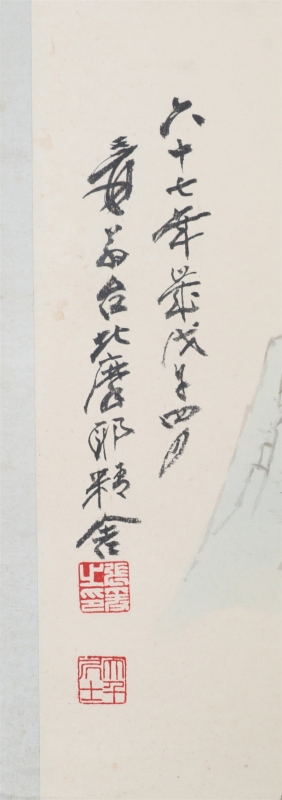 六十七年歲戊午四月
爰翁台北摩耶精舍
張爰之印
大千居士